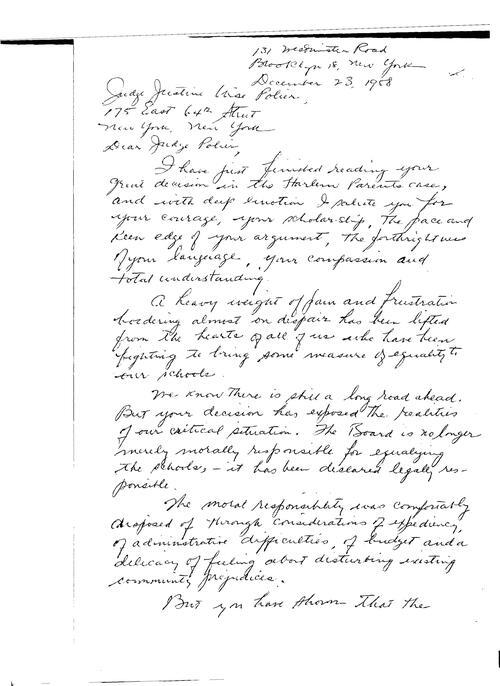 131 Westminster Road
Brooklyn 18, New York
December 23, 1958
Judge Justine Wise Polier,
175 East 64th Street
New York, New York
Dear Judge Polier,
I have just finished reading your
great decision in the Harlem Parents case,
and with deep emotion I salute you for
your courage, your scholarship, the pace and
keen edge of your argument, the forthrightness
of your language, your compassion and
total understanding.
A heavy weight of pain and frustration
bordering almost on despair has been lifted
from the hearts of all of us who have been
fighting to bring some measure of equality to
our schools.
We know there is still a long road ahead.
But your decision has exposed the realities
of our critical situation. The Board is no longer
merely morally responsible for equalizing
the schools, – it has been declared legally res-
ponsible.
The moral responsibility was comfortably
disposed of through considerations of expediency,
of administrative difficulties, of budget and a
delicacy of feeling about disturbing existing
community prejudices.
But you have shown that the